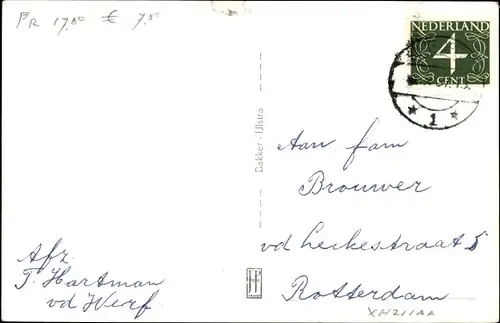 PR 17,50 € 7,50
NEDERLAND
4
CENT
1
Bakker - IJlstra
Aan fam
Brouwer
vd Leckestraat 5
Rotterdam
Afz.
T. Hartman
vd Werf.
H
XH211AA